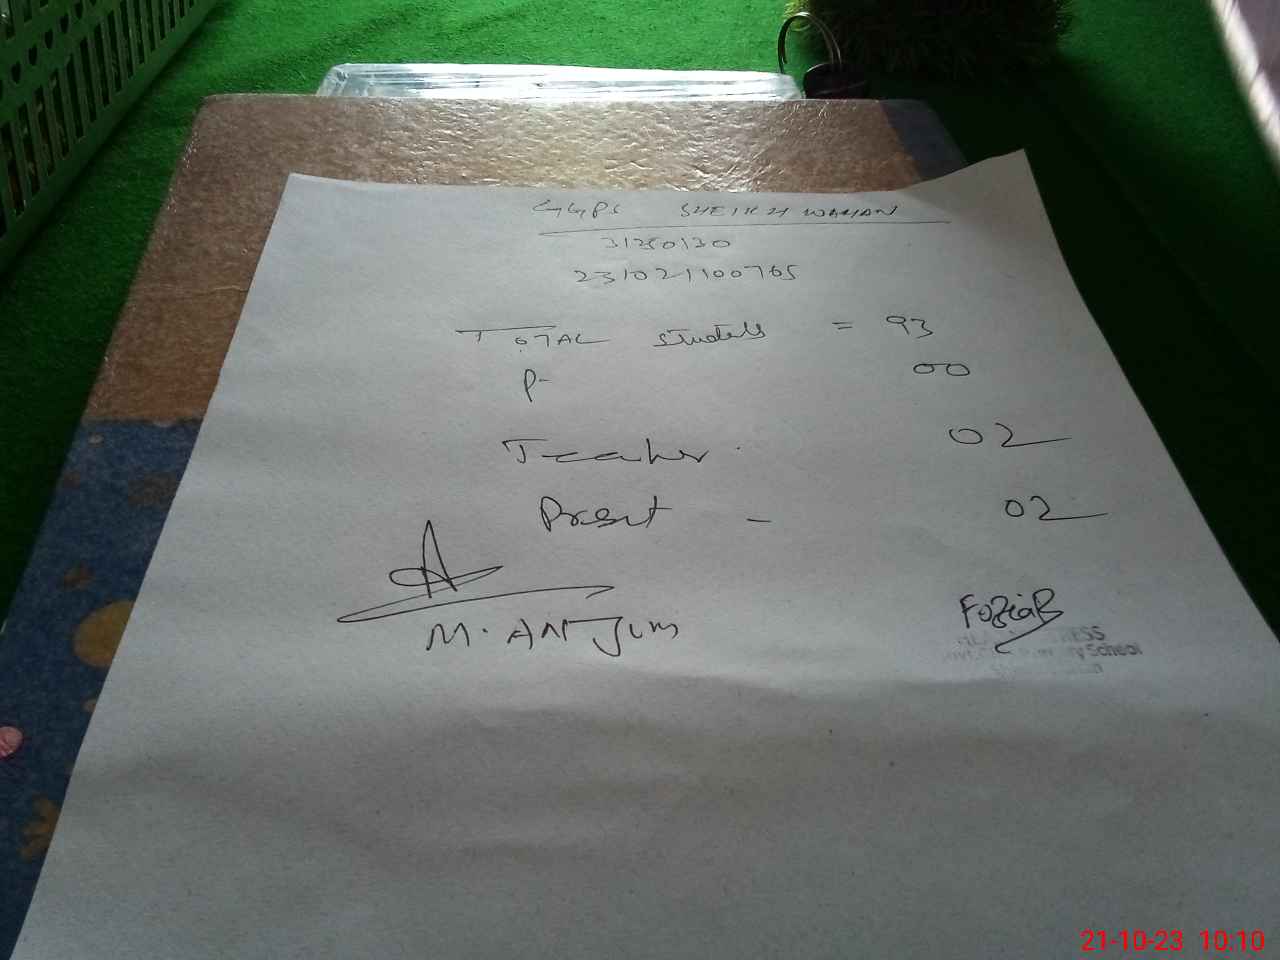 GGPS SHEIKH WAHAN
31250130
231021100765
TOTAL students = 93
P- 00
Teacher 02
Present - 02
A
M. ANJUM
FoziaB
School
21-10-23 10:10